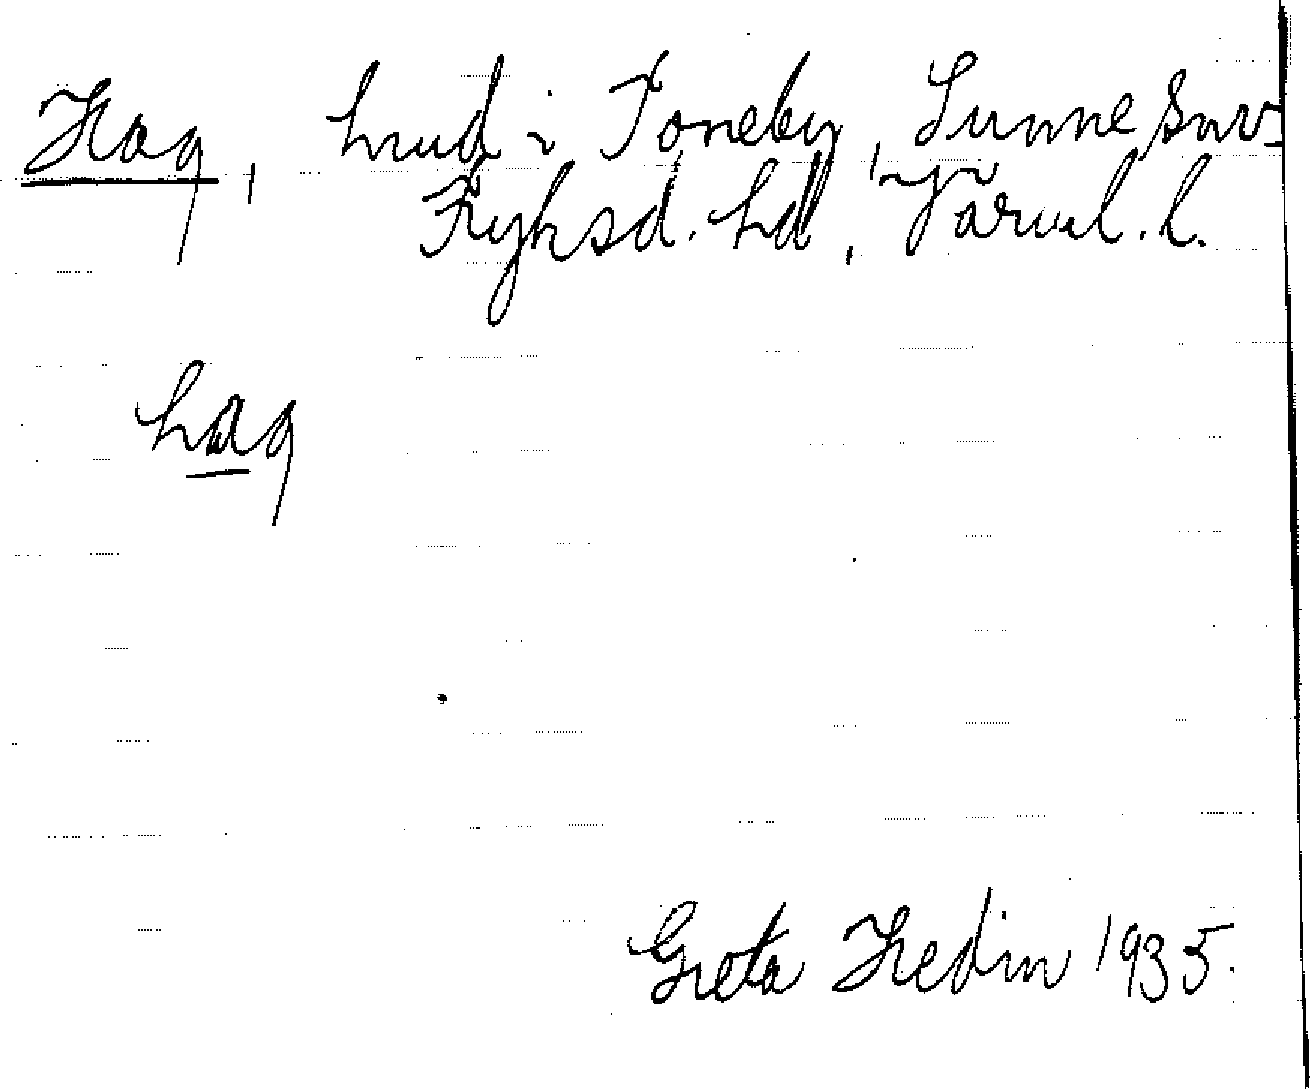 Hag, hmd i Toneby, Sunne snv
Fryksd. hd, Värml. l.
hag
Greta Hedin 1935.